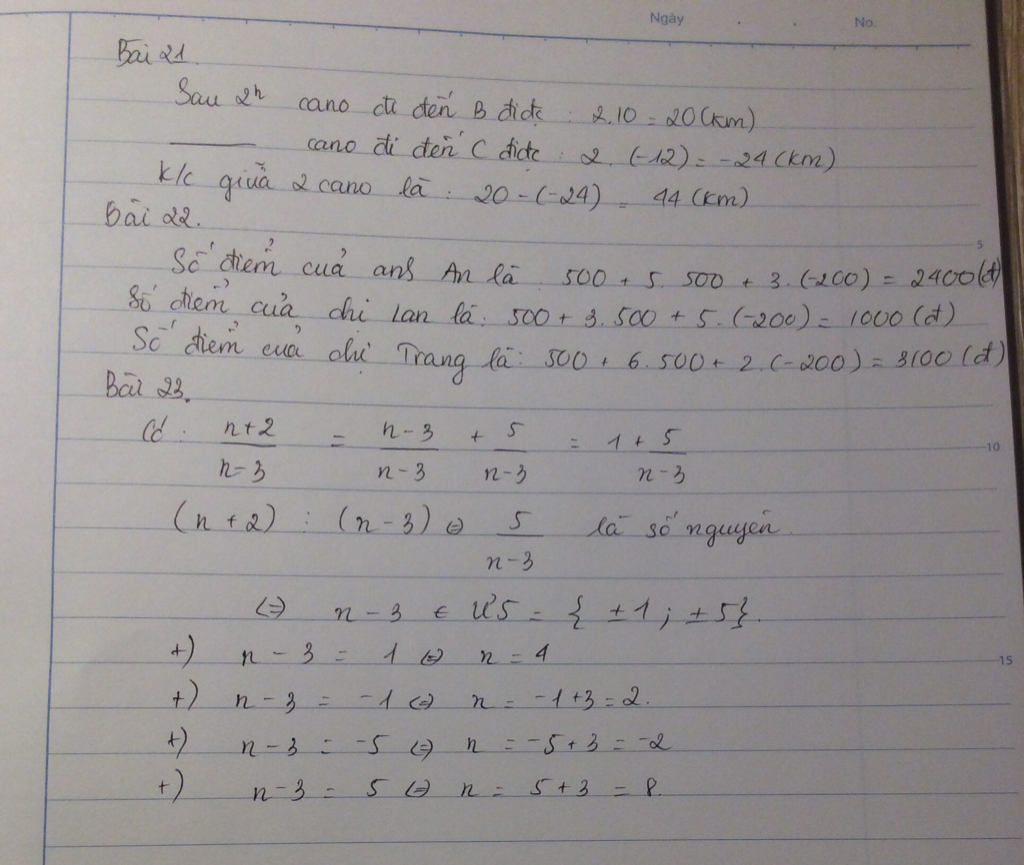 Ngày . . No.
Bài 21.
Sau 2h cano đi đến B đi đc : 2.10 = 20 (km)
——— cano đi đến C đi đc : 2. (-12) = -24 (km)
k/c giữa 2 cano là : 20 - (-24) = 44 (km)
Bài 22.
5
Số điểm của anh An là : 500 + 5. 500 + 3. (-200) = 2400 (đ)
Số điểm của chị Lan là: 500 + 3. 500 + 5. (-200) = 1000 (đ)
Số điểm của chị Trang là: 500 + 6. 500 + 2. (-200) = 3100 (đ)
Bài 23.
Có : (n+2)/(n-3) = (n-3)/(n-3) + 5/(n-3) = 1 + 5/(n-3)
10
(n + 2) : (n - 3) ⇔ 5/(n-3) là số nguyên
⇔ n - 3 ∈ Ư5 = { ±1 ; ±5}.
+) n - 3 = 1 ⇔ n = 4
15
+) n - 3 = -1 ⇔ n = -1+3 = 2.
+) n - 3 = -5 ⇔ n = -5+3 = -2
+) n - 3 = 5 ⇔ n = 5+3 = 8.